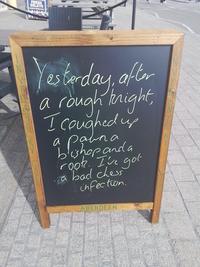 Yesterday, after
a rough knight,
I coughed up
a pawn a
bishop and a
rook. I've got
a bad chess
infection.
ABERDEEN